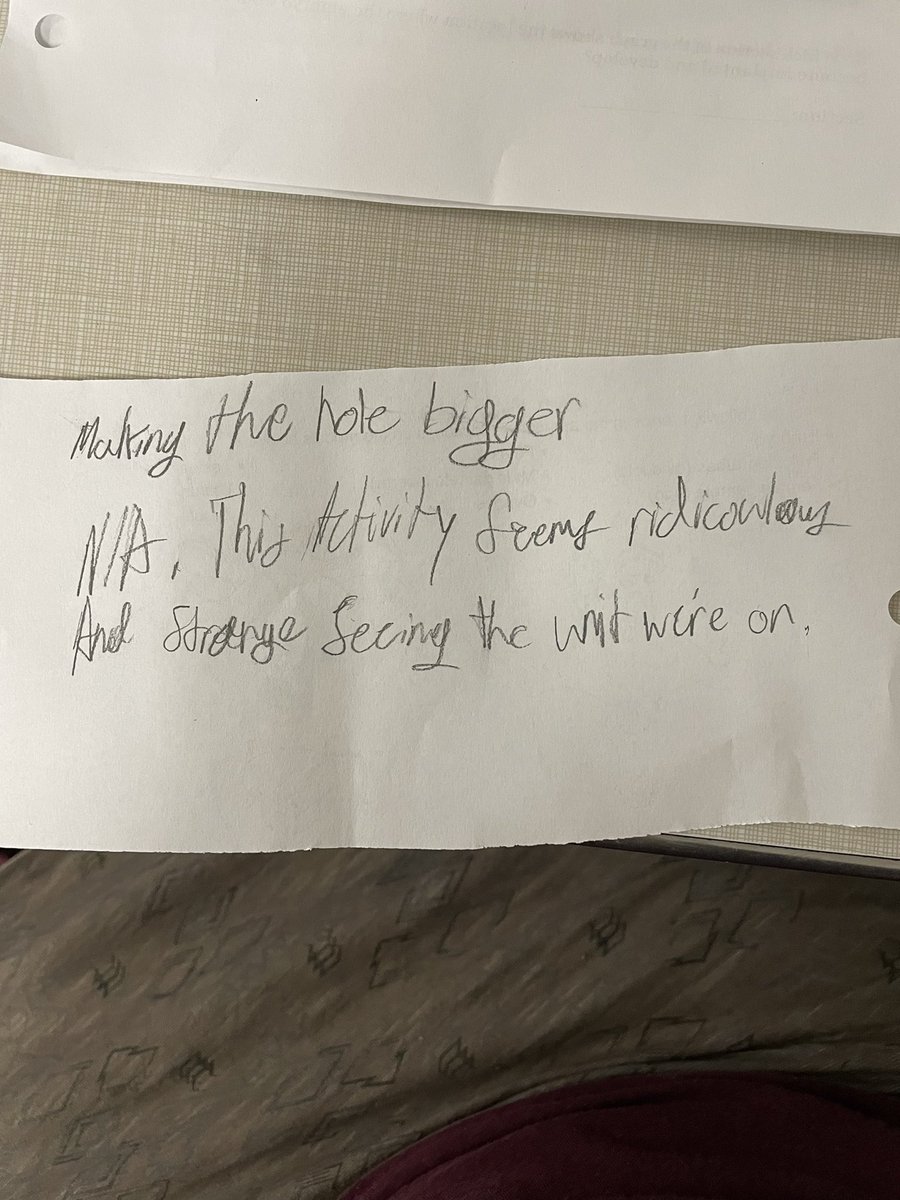 Making the hole bigger
N/A. This Activity seems ridiculous
And strange seeing the unit we're on.